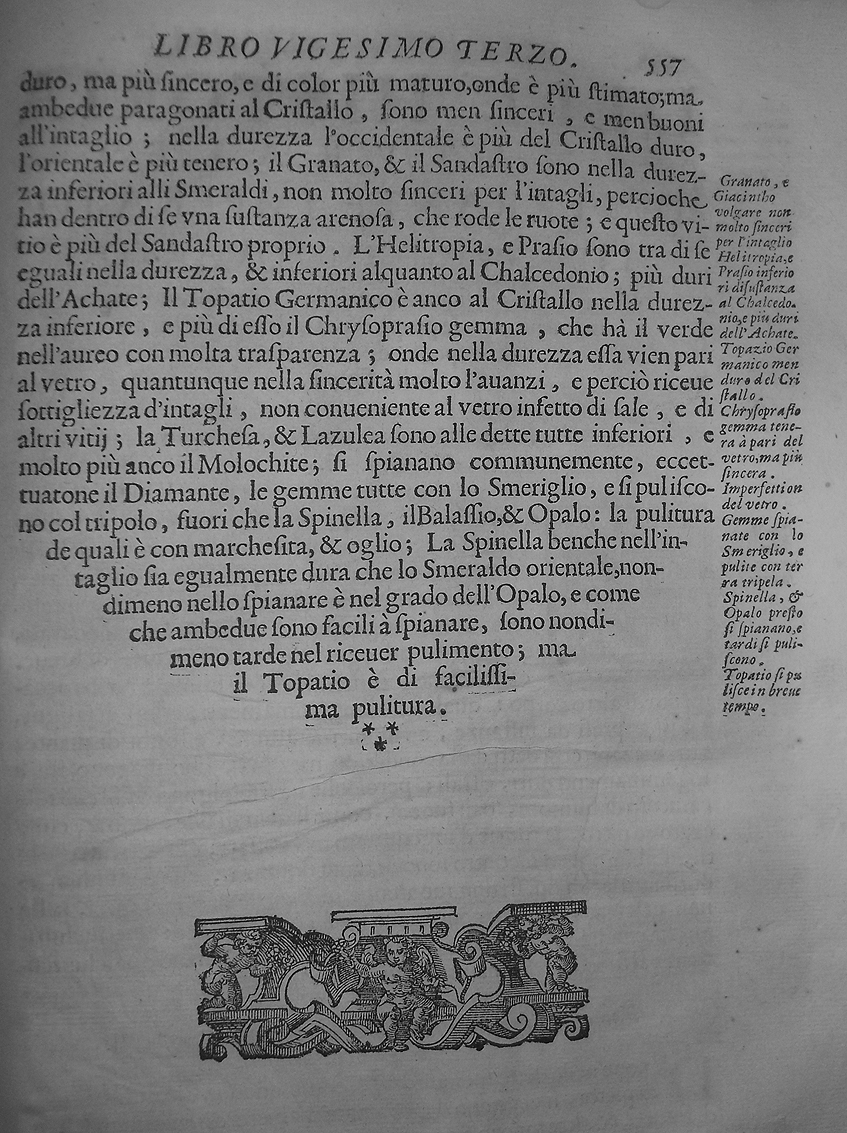 LIBRO VIGESIMO TERZO.
557
duro, ma più ſincero, e di color più maturo, onde è più ſtimato; ma
ambedue paragonati al Criſtallo, ſono men ſinceri, e men buoni
all'intaglio; nella durezza l'occidentale è più del Criſtallo duro,
l'orientale è più tenero; il Granato, & il Sandaſtro ſono nella durez-
za inferiori alli Smeraldi, non molto ſinceri per l'intagli, percioche
han dentro di ſe vna ſuſtanza arenoſa, che rode le ruote; e queſto vi-
tio è più del Sandaſtro proprio. L'Helitropia, e Praſio ſono tra di ſe
eguali nella durezza, & inferiori alquanto al Chalcedonio; più duri
dell'Achate; Il Topatio Germanico è anco al Criſtallo nella durez-
za inferiore, e più di eſſo il Chryſopraſio gemma, che hà il verde
nell'aureo con molta traſparenza; onde nella durezza eſſa vien pari
al vetro, quantunque nella ſincerità molto l'auanzi, e perciò riceue
ſottigliezza d'intagli, non conueniente al vetro infetto di ſale, e di
altri vitij; la Turcheſa, & Lazulea ſono alle dette tutte inferiori, e
molto più anco il Molochite; ſi ſpianano communemente, eccet-
tuatone il Diamante, le gemme tutte con lo Smeriglio, e ſi puliſco-
no col tripolo, fuori che la Spinella, il Balaſſio, & Opalo: la pulitura
de quali è con marcheſita, & oglio; La Spinella benche nell'in-
taglio ſia egualmente dura che lo Smeraldo orientale, non-
dimeno nello ſpianare è nel grado dell'Opalo, e come
che ambedue ſono facili à ſpianare, ſono nondi-
meno tarde nel riceuer pulimento; ma
il Topatio è di faciliſſi-
ma pulitura.
Granato, e
Giacintho
volgare non
molto ſinceri
per l'intaglio
Helitropia, e
Praſio inferio
ri di ſuſtanza
al Chalcedo-
nio, e più duri
dell'Achate.
Topazio Ger
manico men
duro del Cri
ſtallo.
Chryſopraſio
gemma tene-
ra à pari del
vetro, ma più
ſincera.
Imperfettion
del vetro.
Gemme ſpia-
nate con lo
Smeriglio, e
pulite con ter
ra tripela.
Spinella, &
Opalo preſto
ſi ſpianano, e
tardi ſi puli-
ſcono.
Topatio ſi pu
liſce in breue
tempo.